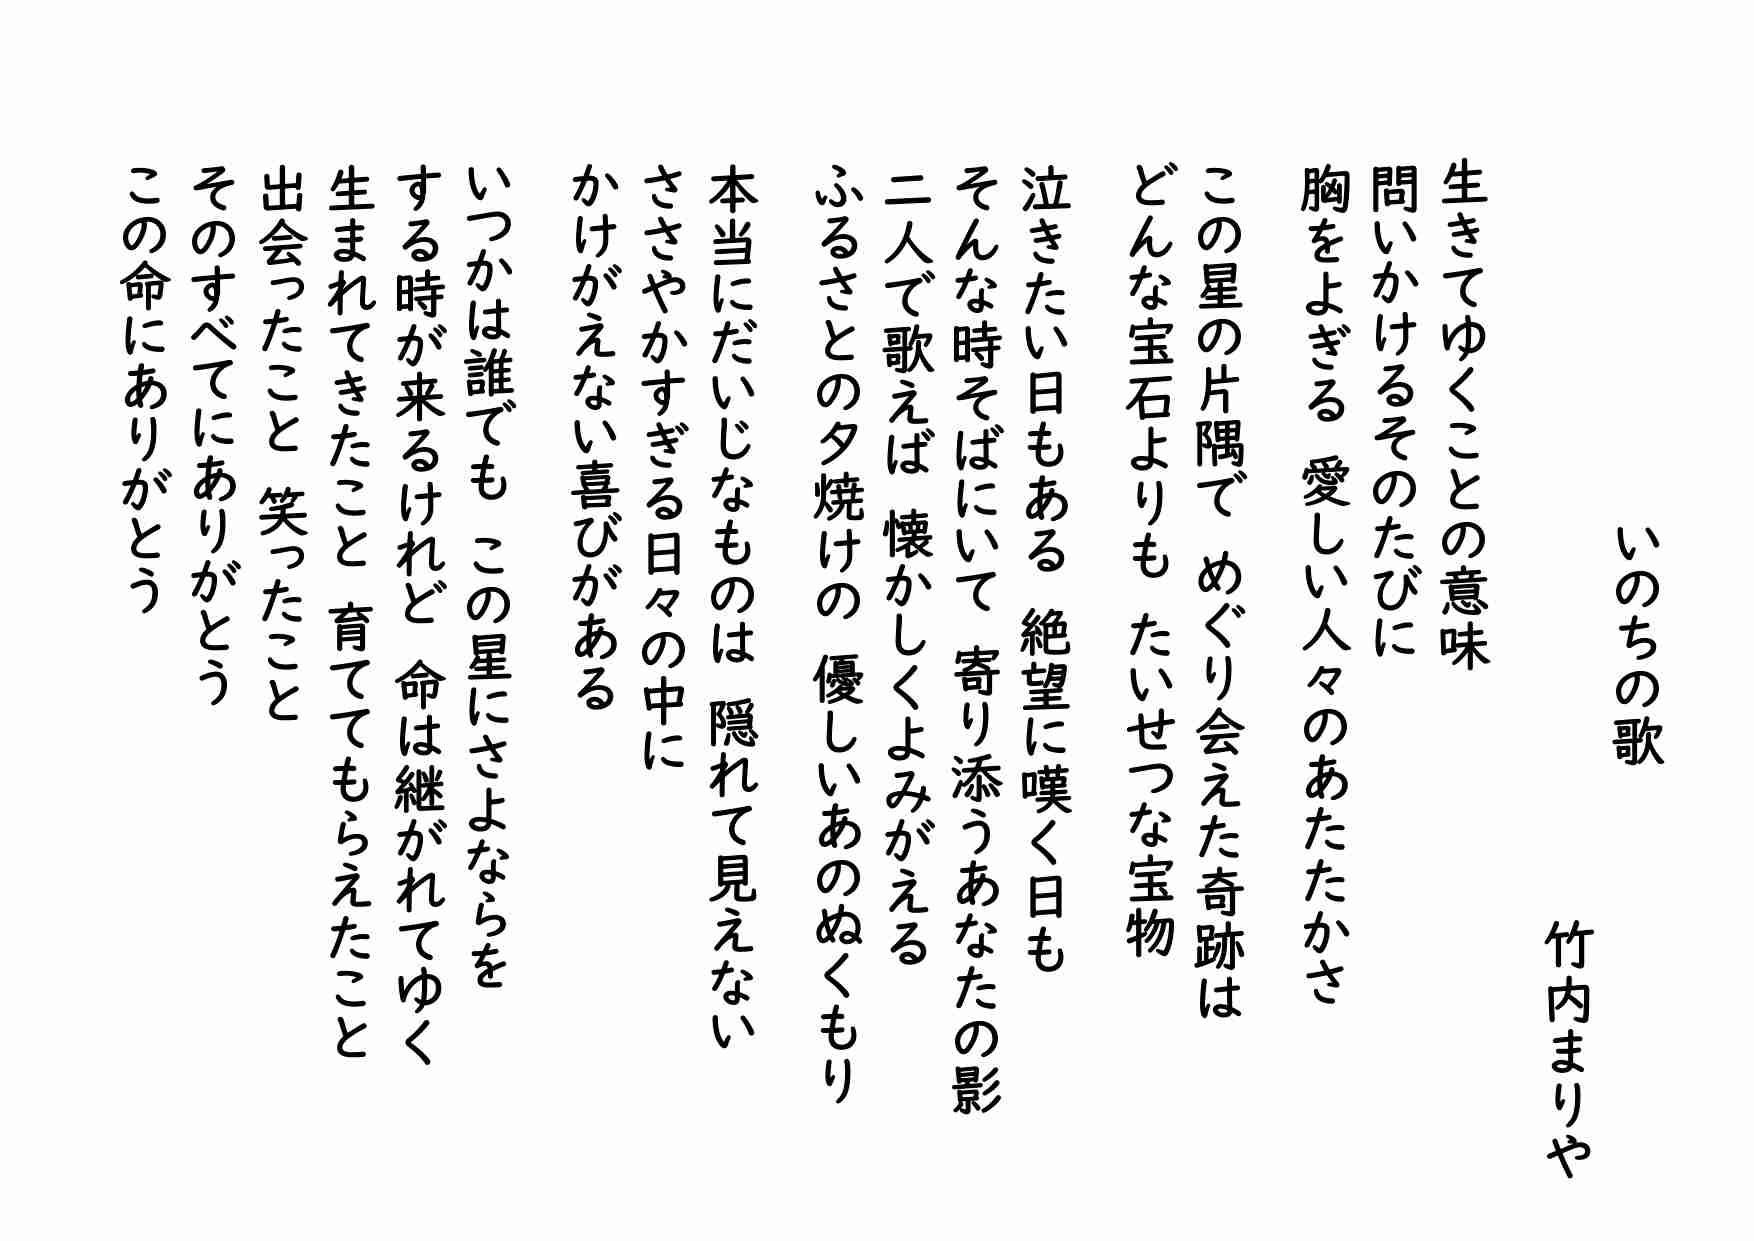 いのちの歌
竹内まりや
生きてゆくことの意味
問いかけるそのたびに
胸をよぎる 愛しい人々のあたたかさ
この星の片隅で めぐり会えた奇跡は
どんな宝石よりも たいせつな宝物
泣きたい日もある 絶望に嘆く日も
そんな時そばにいて 寄り添うあなたの影
二人で歌えば 懐かしくよみがえる
ふるさとの夕焼けの 優しいあのぬくもり
本当にだいじなものは 隠れて見えない
ささやかすぎる日々の中に
かけがえない喜びがある
いつかは誰でも この星にさよならを
する時が来るけれど 命は継がれてゆく
生まれてきたこと 育ててもらえたこと
出会ったこと 笑ったこと
そのすべてにありがとう
この命にありがとう